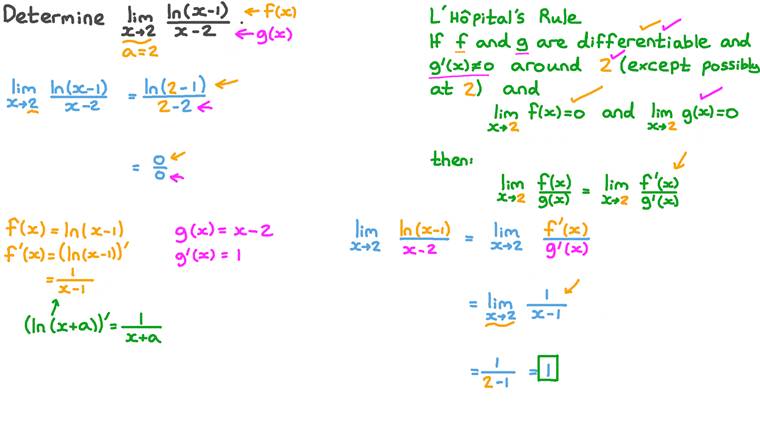 Determine lim x→2 ln(x-1)/x-2 . ← f(x) ← g(x)
a=2
lim x→2 ln(x-1)/x-2 = ln(2-1)/2-2
= 0/0
f(x)=ln(x-1)
f'(x)=(ln(x-1))'
= 1/x-1
(ln(x+a))'= 1/x+a
g(x)= x-2
g'(x)= 1
L'Hôpital's Rule
If f and g are differentiable and
g'(x)≠0 around 2 (except possibly
at 2) and
lim x→2 f(x)=0 and lim x→2 g(x)=0
then:
lim x→2 f(x)/g(x) = lim x→2 f'(x)/g'(x)
lim x→2 ln(x-1)/x-2 = lim x→2 f'(x)/g'(x)
= lim x→2 1/x-1
= 1/2-1 = 1